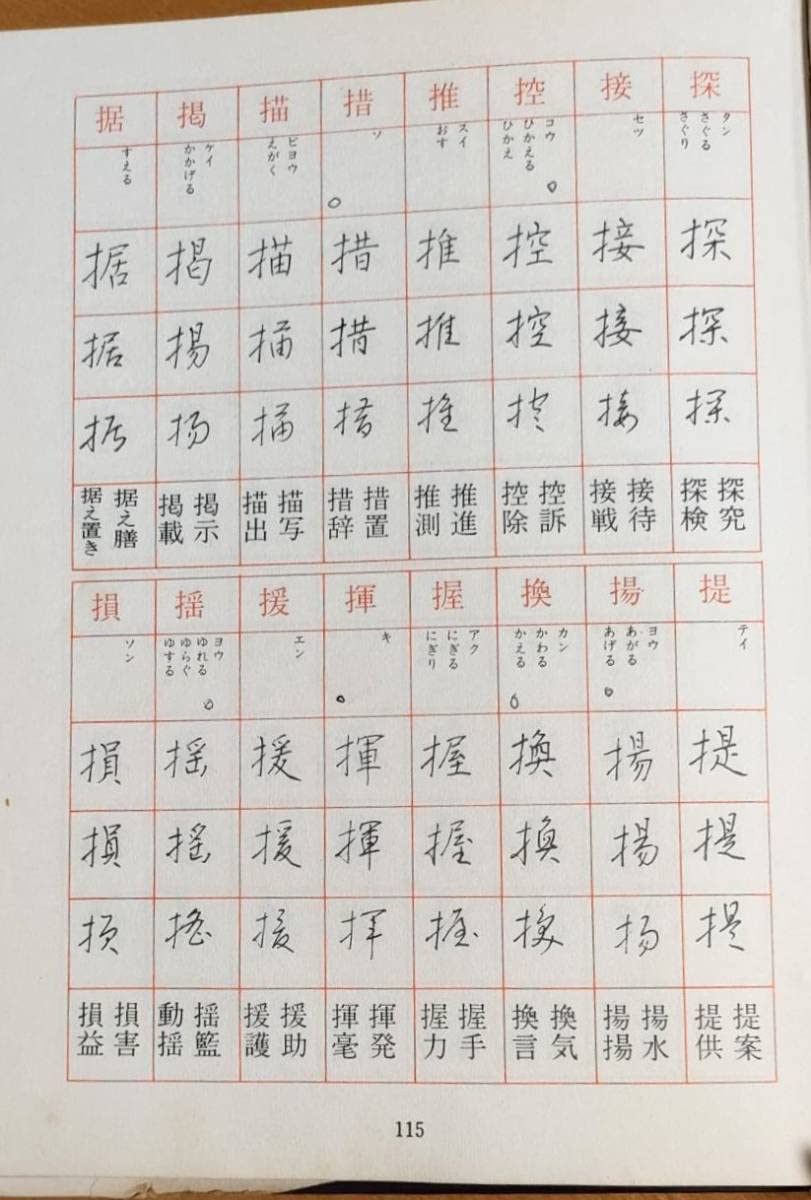 探
タン
さぐる
さぐり
探
探
探
探究
探検
接
セツ
接
接
接
接待
接戦
控
コウ
ひかえる
ひかえ
控
控
控
控訴
控除
推
スイ
おす
推
推
推
推進
推測
措
ソ
措
措
措
措置
措辞
描
ビヨウ
えがく
描
描
描
描写
描出
掲
ケイ
かかげる
掲
掲
掲
掲示
掲載
据
すえる
据
据
据
据え膳
据え置き
提
テイ
提
提
提
提案
提供
揚
ヨウ
あがる
あげる
揚
揚
揚
揚水
揚揚
換
カン
かわる
かえる
換
換
換
換気
換言
握
アク
にぎる
にぎり
握
握
握
握手
握力
揮
キ
揮
揮
揮
揮発
揮毫
援
エン
援
援
援
援助
援護
揺
ヨウ
ゆれる
ゆらぐ
ゆする
揺
揺
揺
揺籃
動揺
損
ソン
損
損
損
損害
損益
115